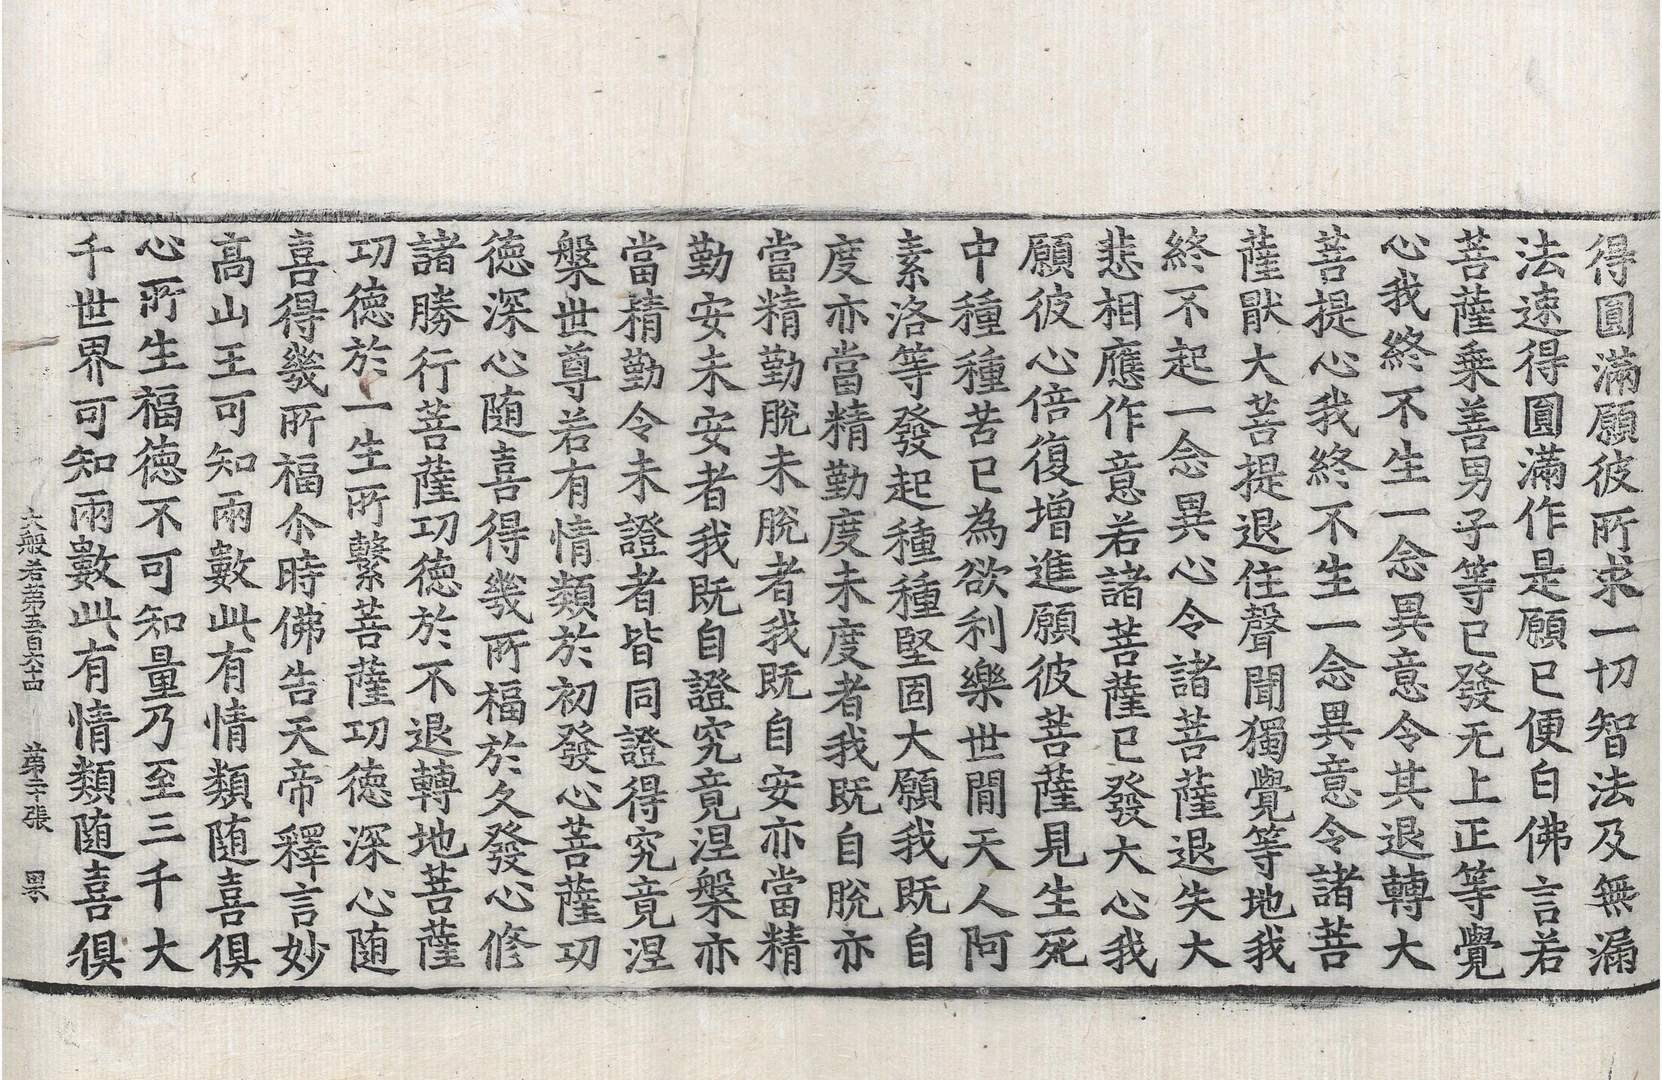 得圓滿願彼所求一切智法及無漏
法速得圓滿作是願已便白佛言若
菩薩乗善男子等已發无上正等覺
心我終不生一念異意令其退轉大
菩提心我終不生一念異意令諸菩
薩猒大菩提退住聲聞獨覺等地我
終不起一念異心令諸菩薩退失大
悲相應作意若諸菩薩已發大心我
願彼心倍復增進願彼菩薩見生死
中種種苦已為欲利樂世間天人阿
素洛等發起種種堅固大願我既自
度亦當精勤度未度者我既自脫亦
當精勤脫未脫者我既自安亦當精
勤安未安者我既自證究竟涅槃亦
當精勤令未證者皆同證得究竟涅
槃世尊若有情類於初發心菩薩功
德深心随喜得幾所福於久發心修
諸勝行菩薩功德於不退轉地菩薩
功德於一生所繫菩薩功德深心随
喜得幾所福尒時佛告天帝釋言妙
高山王可知兩數此有情類随喜俱
心所生福德不可知量乃至三千大
千世界可知兩數此有情類随喜俱
大般若第五百六十四　第二十張　果